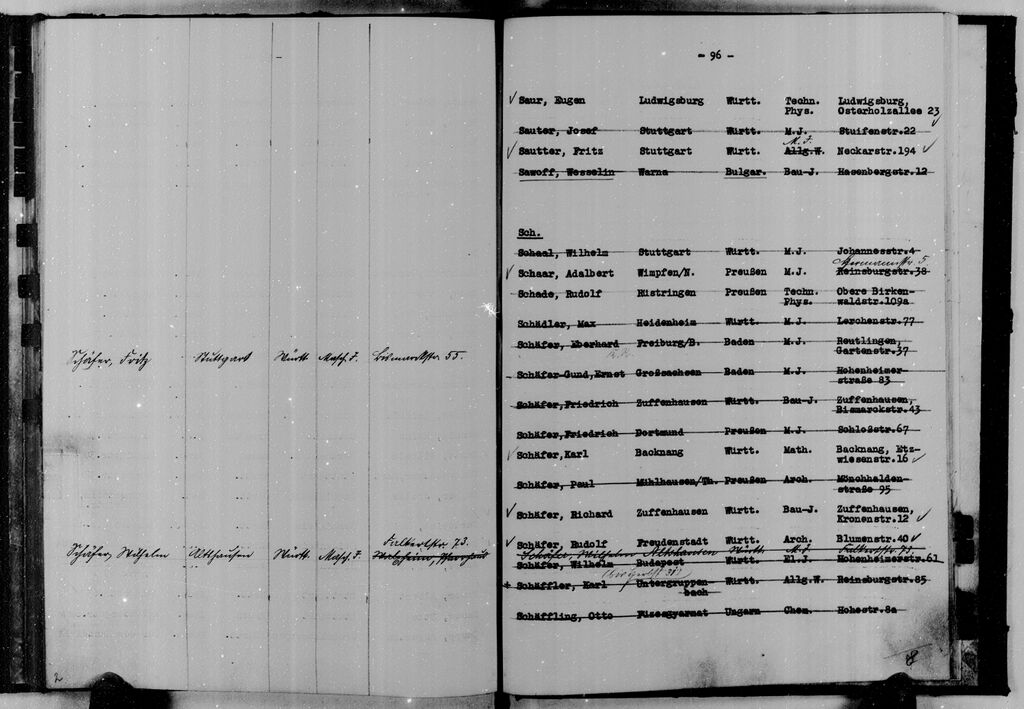 Schäfer, Fritz Stuttgart Württ Masch. I. Bismarckstr. 55.
Falkertstr. 73.
Schäfer, Wilhelm Altshausen Württ Masch. I.
2
- 96 -
✓ Saur, Eugen Ludwigsburg Württ. Techn. Ludwigsburg,
Phys. Osterholzallee 23 ✓
Sauter, Josef Stuttgart Württ. M.J. Stuifenstr.22
M. I.
✓ Sautter, Fritz Stuttgart Württ. Allg.W. Neckarstr.194 ✓
Sawoff, Wesselin Warna Bulgar. Bau-J. Hasenbergstr.12
Sch.
Schaal, Wilhelm Stuttgart Württ. M.J. Johannesstr.4
✓ Schaar, Adalbert Wimpfen/N. Preußen M.J. Reinsburgstr.38
Schade, Rudolf Rüstringen Preußen Techn. Obere Birken-
Phys. waldstr.109a
Schädler, Max Heidenheim Württ. M.J. Lerchenstr.77
Schäfer, Eberhard Freiburg/B. Baden M.J. Reutlingen,
Gartenstr.37
Schäfer-Gund,Ernst Großsachsen Baden M.J. Hohenheimer-
straße 83
Schäfer,Friedrich Zuffenhausen Württ. Bau-J. Zuffenhausen,
Bismarckstr.43
Schäfer,Friedrich Dortmund Preußen M.J. Schloßstr.67
✓ Schäfer,Karl Backnang Württ. Math. Backnang, Etz-
wiesenstr.16 ✓
Schäfer, Paul Mühlhausen/Th. Preußen Arch. Mönchhalden-
straße 95
✓ Schäfer, Richard Zuffenhausen Württ. Bau-J. Zuffenhausen,
Kronenstr.12 ✓
✓ Schäfer, Rudolf Freudenstadt Württ. Arch. Blumenstr.40 ✓
Schäfer, Wilhelm Altshausen Württ. M.I. Falkertstr. 73
Schäfer, Wilhelm Budapest Württ. El.J. Hohenheimerstr.61
+ Schäffler, Karl Untergruppen- Württ. Allg.W. Reinsburgstr.85
bach
Schäffling, Otto Füzesgyarmat Ungarn Chem. Hohestr.8a
8